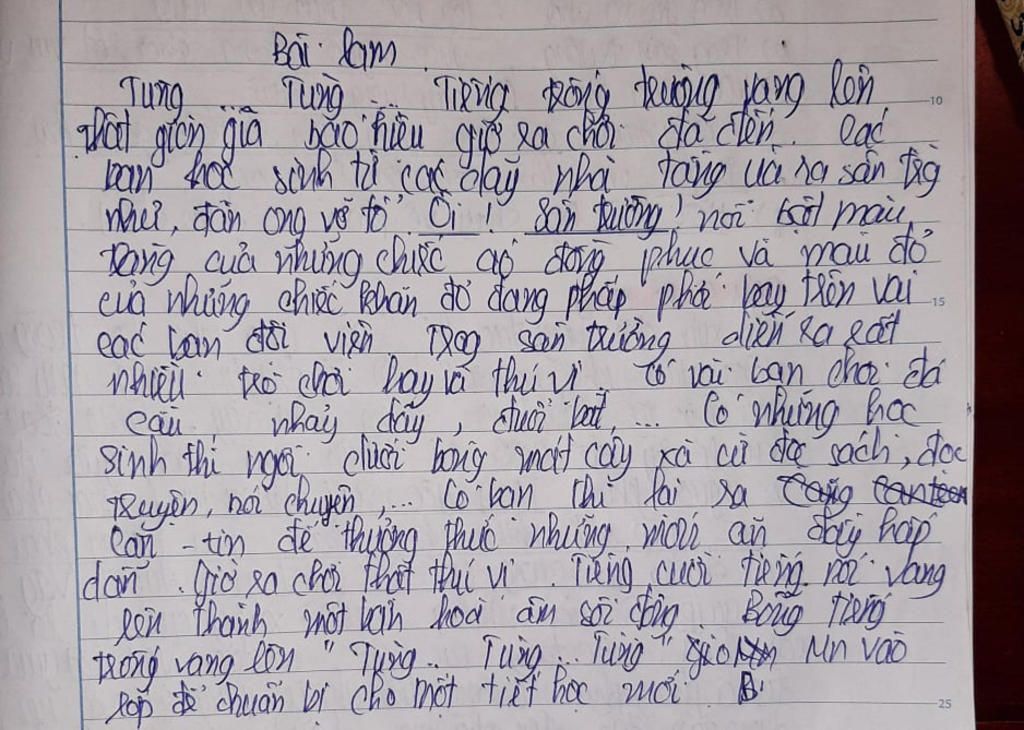 Bài làm
Tùng ... Tùng ... Tiếng trống trường vang lên
thật giòn giã báo hiệu giờ ra chơi đã đến. Các
bạn học sinh từ các dãy nhà tầng ùa ra sân trg
như đàn ong vỡ tổ. Ôi! Sân trường! nơi
trắng của những chiếc áo đồng phục và màu đỏ
của những chiếc khăn đỏ đang phấp phới bay trên vai
các bạn đội viên. Trog sân trường diễn ra rất
nhiều trò chơi hay và thú vị. Có vài bạn chơi đá
cầu, nhảy dây, đuổi bắt, ... Có những học
sinh thì ngồi dưới bóng mát cây xà cừ đọc sách, đọc
truyện, nói chuyện, ... Có bạn thì lại ra
căn-tin để thưởng thức những món ăn đầy hấp
dẫn. Giờ ra chơi thật thú vị. Tiếng cười tiếng nói vang
lên thành một bản hoà âm sôi động. Bỗng tiếng
trống vang lên "Tùng.. Tùng... Tùng" vào
lớp để chuẩn bị cho một tiết học mới.
10
15
25